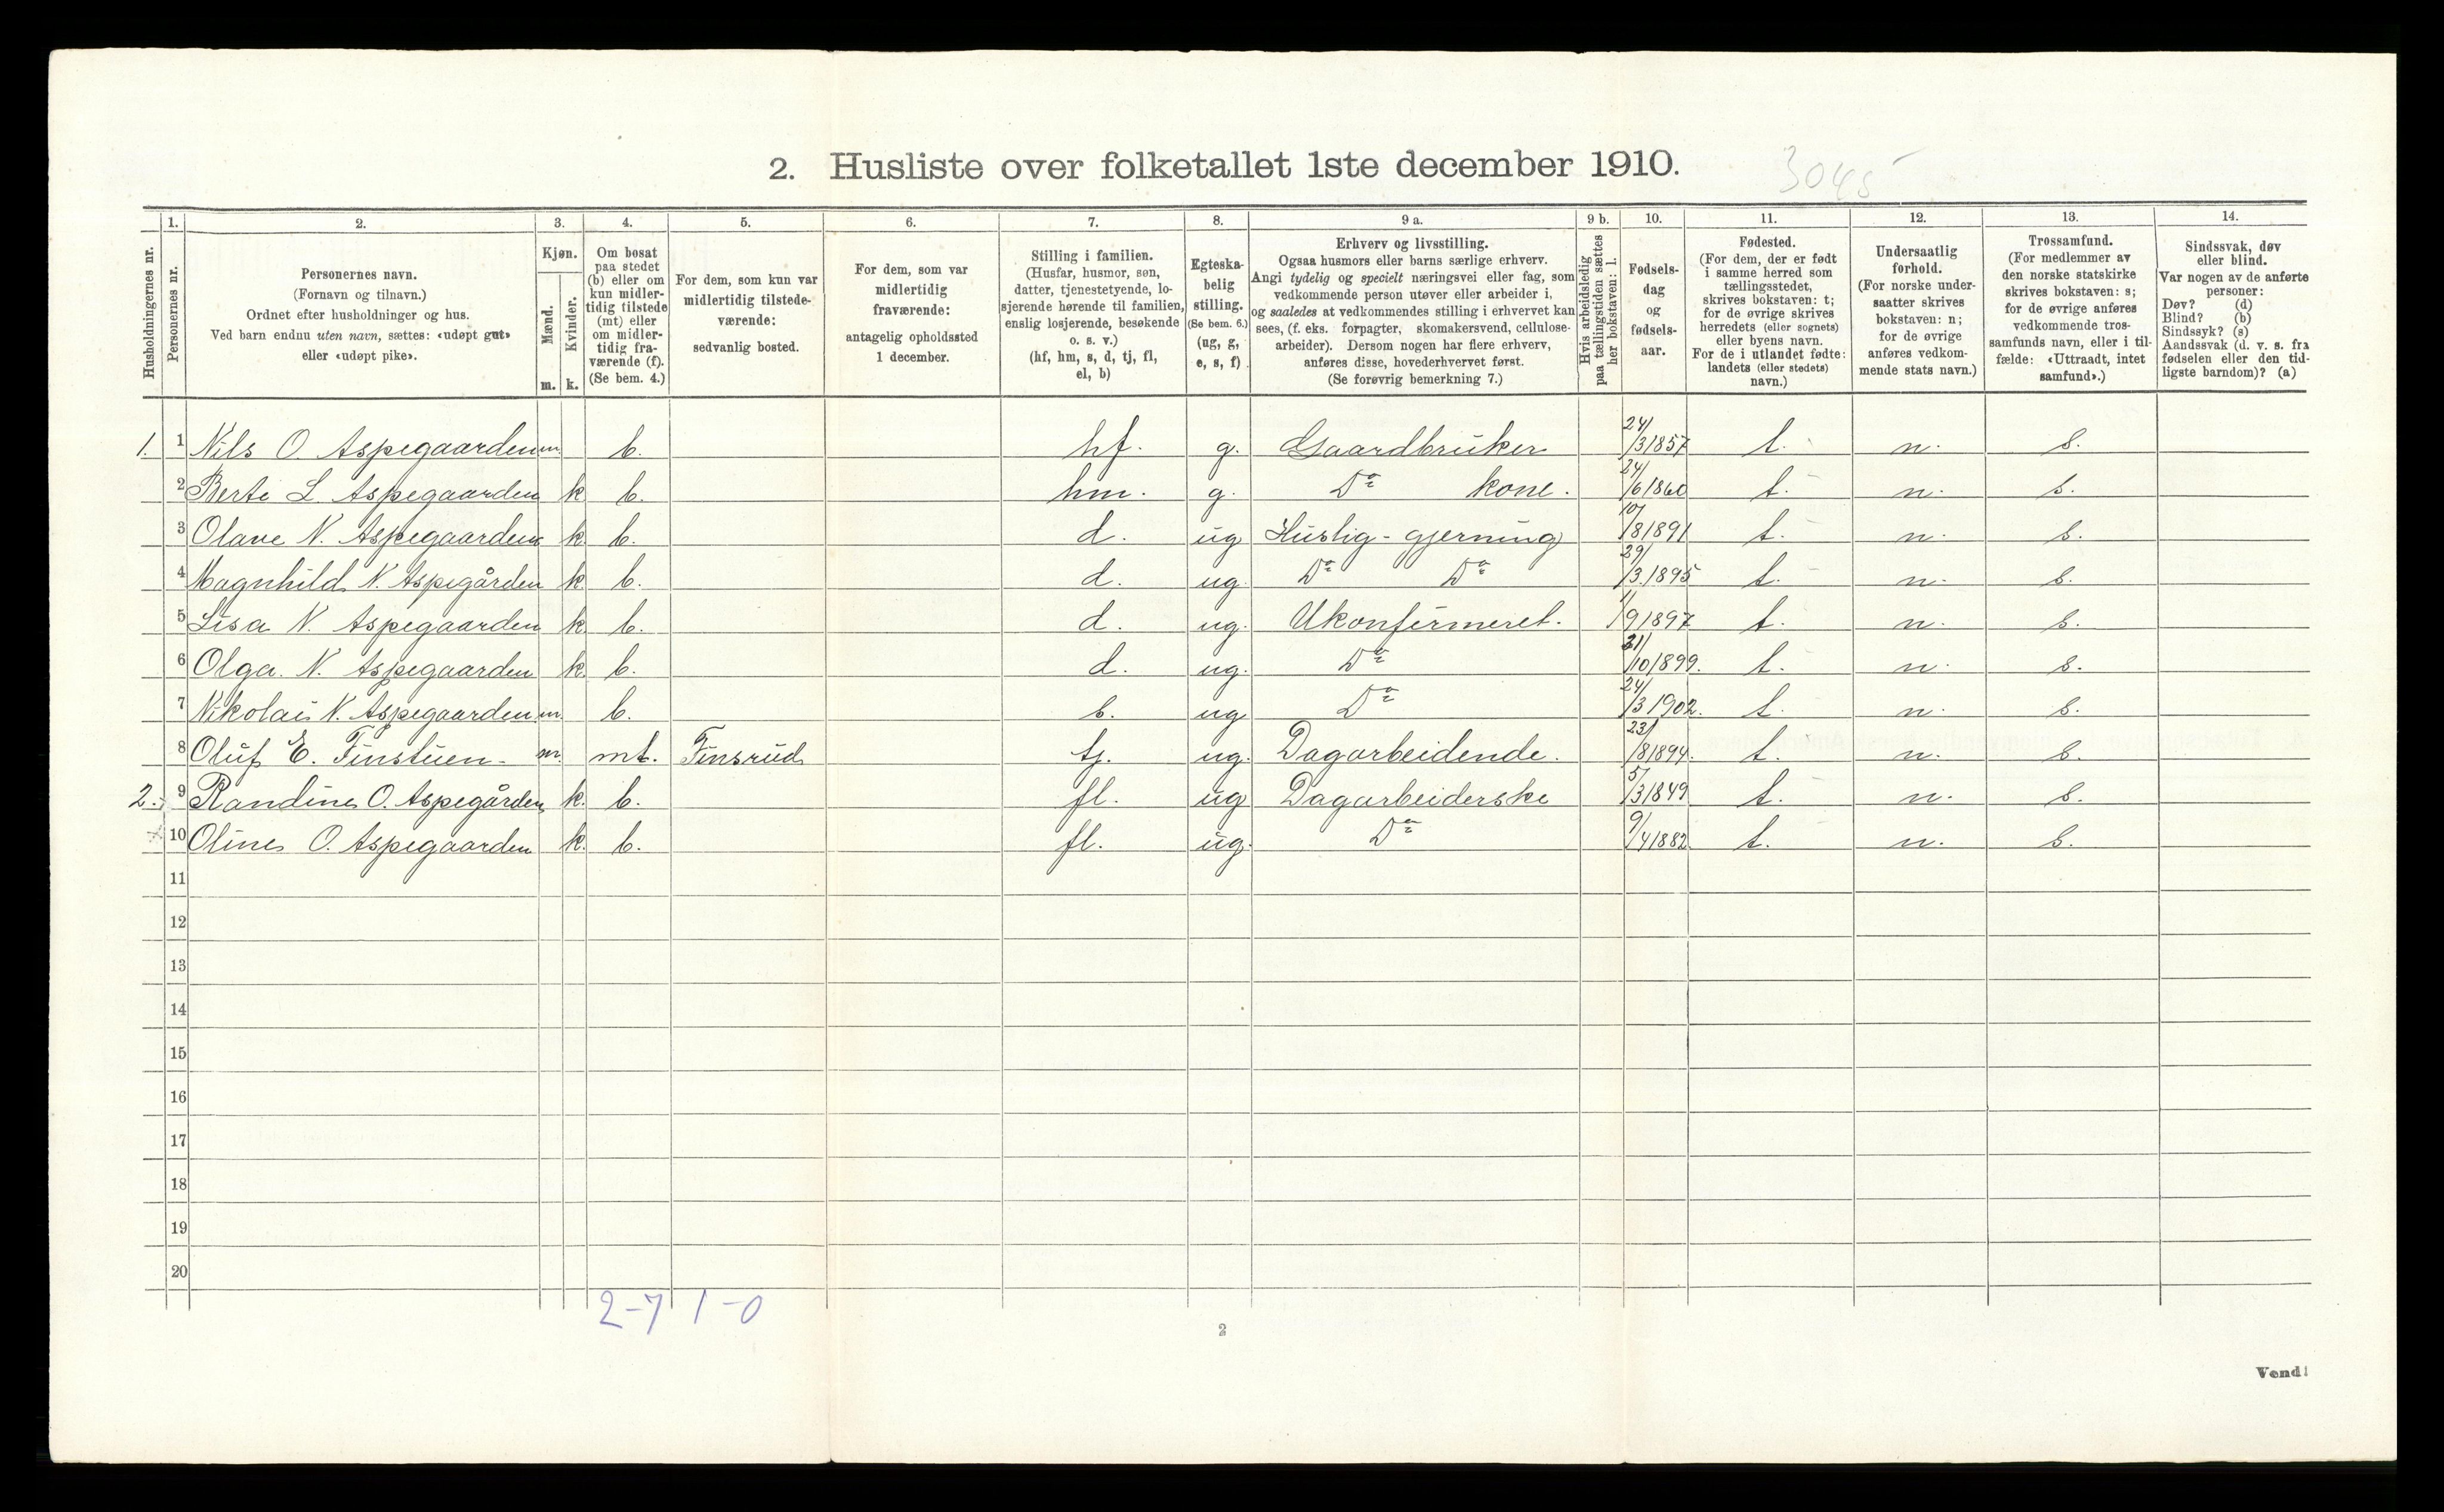 2. Husliste over folketallet 1ste december 1910.
3045
Husholdningernes nr.
1.
Personernes nr.
2.
Personernes navn.
(Fornavn og tilnavn.)
Ordnet efter husholdninger og hus.
Ved barn endnu uten navn, sættes: «udøpt gut»
eller «udøpt pike».
3.
Kjøn.
Mænd.
Kvinder.
m. k.
4.
Om bosat
paa stedet
(b) eller om
kun midler-
tidig tilstede
(mt) eller
om midler-
tidig fra-
værende (f).
(Se bem. 4.)
5.
For dem, som kun var
midlertidig tilstede-
værende:
sedvanlig bosted.
6.
For dem, som var
midlertidig
fraværende:
antagelig opholdssted
1 december.
7.
Stilling i familien.
(Husfar, husmor, søn,
datter, tjenestetyende, lo-
sjerende hørende til familien,
enslig losjerende, besøkende
o. s. v.)
(hf, hm, s, d, tj, fl,
el, b)
8.
Egteska-
belig
stilling.
(Se bem. 6.)
(ug, g,
e, s, f)
9 a.
Erhverv og livsstilling.
Ogsaa husmors eller barns særlige erhverv.
Angi tydelig og specielt næringsvei eller fag, som
vedkommende person utøver eller arbeider i,
og saaledes at vedkommendes stilling i erhvervet kan
sees, (f. eks. forpagter, skomakersvend, cellulose-
arbeider). Dersom nogen har flere erhverv,
anføres disse, hovederhvervet først.
(Se forøvrig bemerkning 7.)
9 b.
Hvis arbeidsledig
paa tællingstiden sættes
her bokstaven: l.
10.
Fødsels-
dag
og
fødsels-
aar.
11.
Fødested.
(For dem, der er født
i samme herred som
tællingsstedet,
skrives bokstaven: t;
for de øvrige skrives
herredets (eller sognets)
eller byens navn.
For de i utlandet fødte:
landets (eller stedets)
navn.)
12.
Undersaatlig
forhold.
(For norske under-
saatter skrives
bokstaven: n;
for de øvrige
anføres vedkom-
mende stats navn.)
13.
Trossamfund.
(For medlemmer av
den norske statskirke
skrives bokstaven: s;
for de øvrige anføres
vedkommende tros-
samfunds navn, eller i til-
fælde: «Uttraadt, intet
samfund».)
14.
Sindssvak, døv
eller blind.
Var nogen av de anførte
personer:
Døv? (d)
Blind? (b)
Sindssyk? (s)
Aandssvak (d. v. s. fra
fødselen eller den tid-
ligste barndom)? (a)
1. 1 Nils O. Aspegaarden m. b. hf. g. Gaardbruker 24/3 1857 t. n. s.
2 Berte L Aspegaarden k b. hm. g. Do kone. 24/6 1860 t. n. s.
3 Olave N. Aspegaarden k. b. d. ug Huslig-gjerning 10/8 1891 t. n. s.
4 Magnhild N. Aspegården k b. d. ug. Do Do 29/3 1895 t. n. s.
5 Lisa N. Aspegaarden k b. d. ug. Ukonfirmeret. 1/9 1897 t. n. s.
6 Olga. N. Aspegaarden k. b. d. ug. Do 21/10 1899. t. n. s.
7 Nikolai N. Aspegaarden m. b. s. ug Do 24/3 1902. t. n. s.
8 Oluf E. Finstuen- m. mt. Finsrud tj. ug. Dagarbeidende. 23/8 1894. t. n. s.
2. 9 Randine O. Aspegården k. b. fl. ug Dagarbeiderske 5/3 1849 t. n. s.
10 Oline O. Aspegaarden k. b. fl. ug. Do 9/4 1882 t. n. s.
11
12
13
14
15
16
17
18
19
20
2-7 1-0
2
Vend!